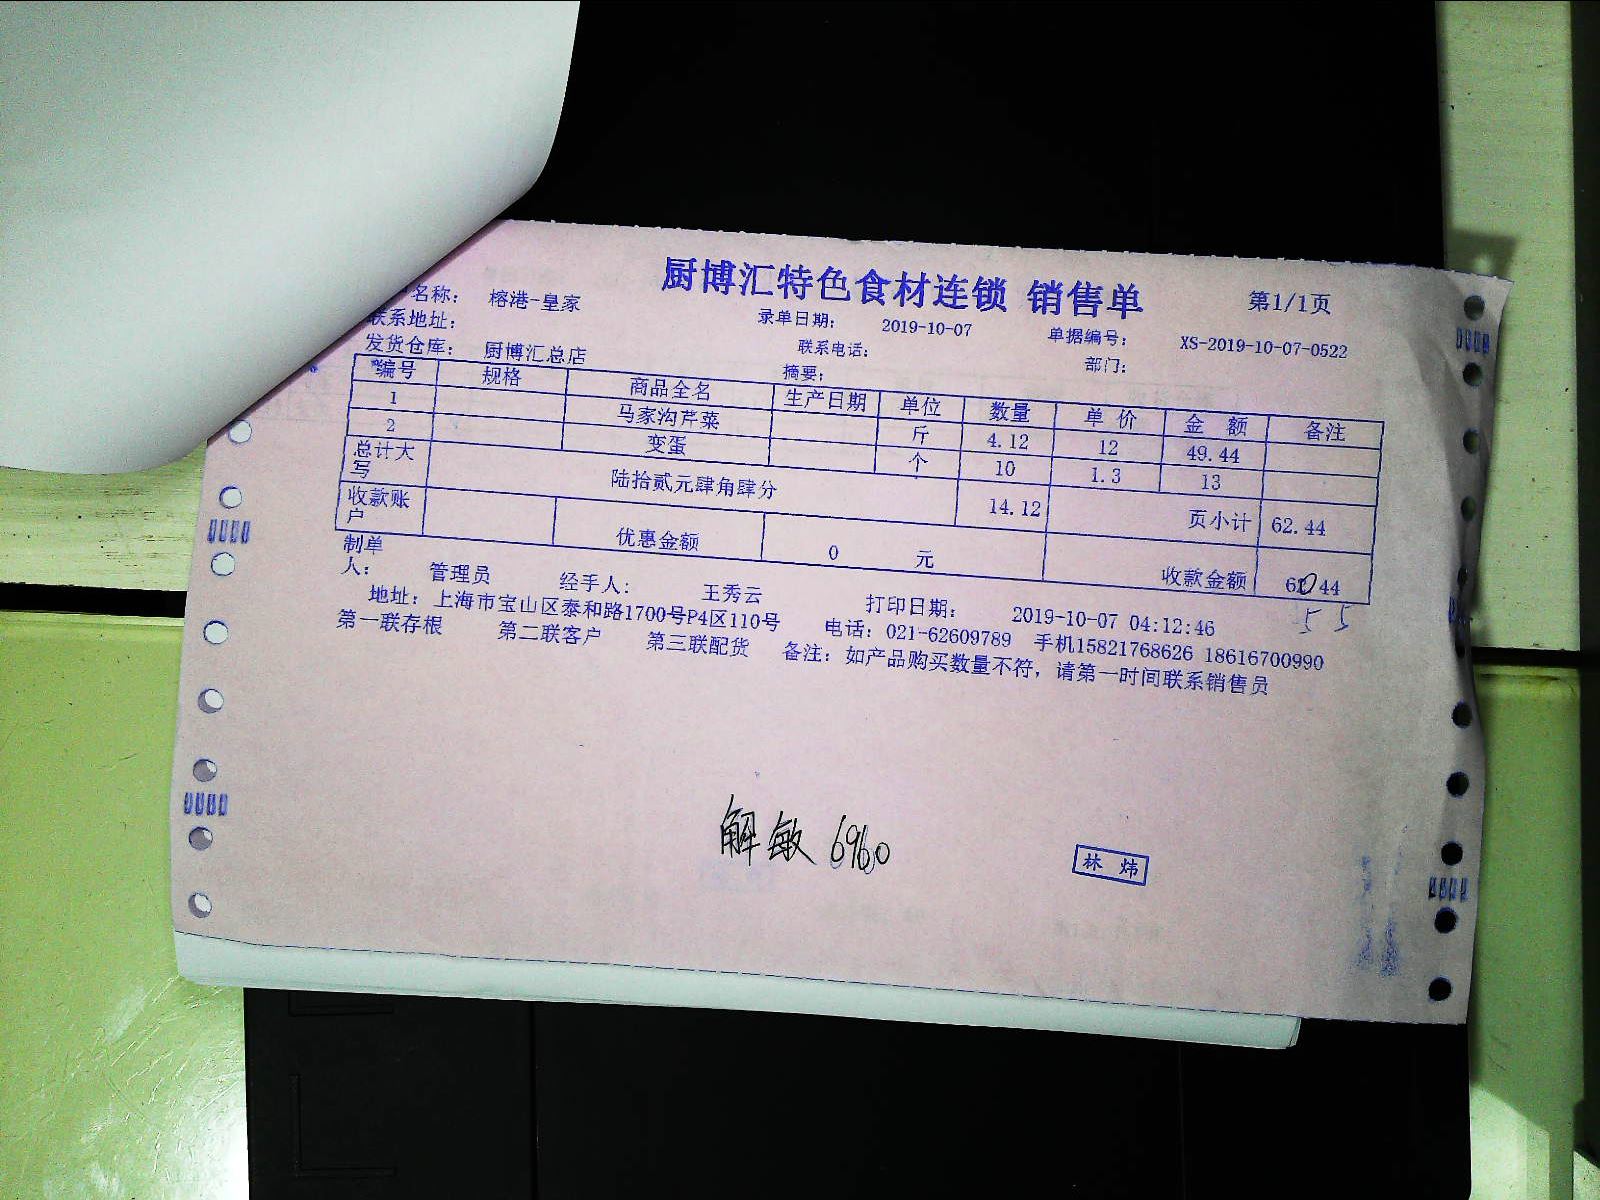 厨博汇特色食材连锁 销售单 第1/1页
名称: 榕港-皇家 录单日期: 2019-10-07 单据编号: XS-2019-10-07-0522
联系地址: 联系电话: 部门:
发货仓库: 厨博汇总店 摘要:
编号 规格 商品全名 生产日期 单位 数量 单价 金额 备注
1 马家沟芹菜 斤 4.12 12 49.44
2 变蛋 个 10 1.3 13
总计大写 陆拾贰元肆角肆分 14.12 页小计 62.44
收款账户 优惠金额 0 元 收款金额
制单人: 管理员 经手人: 王秀云 打印日期: 2019-10-07 04:12:46
地址: 上海市宝山区泰和路1700号P4区110号 电话: 021-62609789 手机15821768626 18616700990
第一联存根 第二联客户 第三联配货 备注: 如产品购买数量不符，请第一时间联系销售员
解敏 6960
林炜